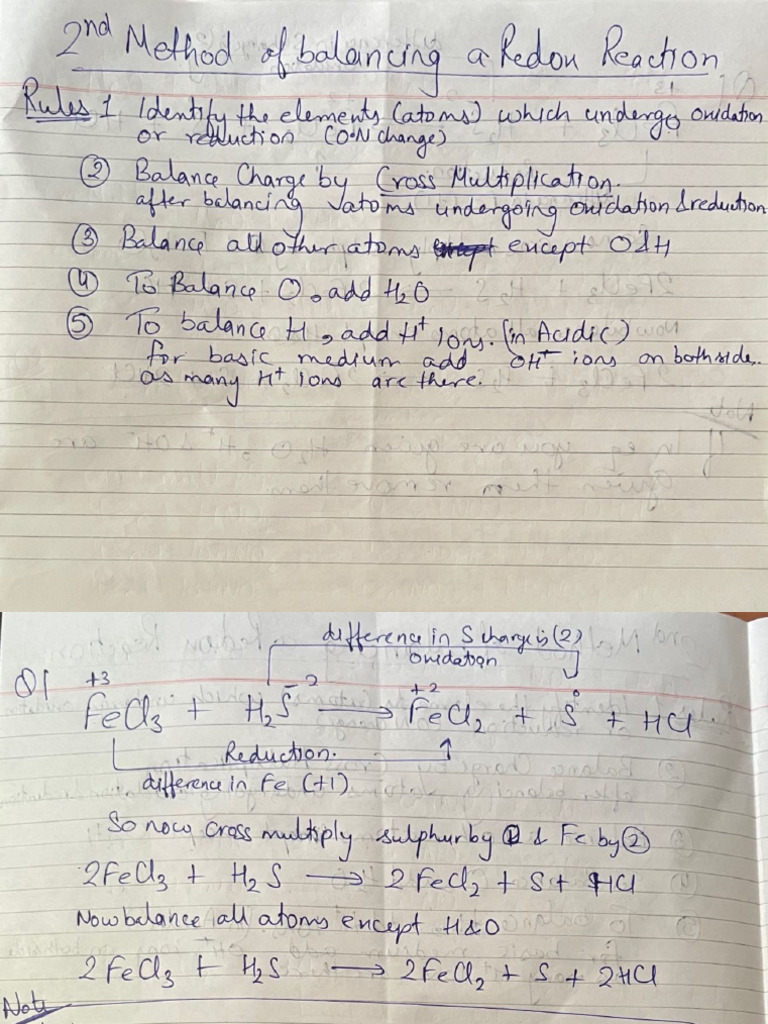 2nd Method of balancing a Redox Reaction
Rules 1 Identify the elements (atoms) which undergo oxidation
or reduction (O.N change)
② Balance Charge by Cross Multiplication.
after balancing atoms undergoing oxidation & reduction
③ Balance all other atoms except O & H
④ To Balance O, add H₂O
⑤ To balance H, add H⁺ ions. (in Acidic)
for basic medium add OH⁻ ions on both side..
as many H⁺ ions are there.
difference in S charge is (2)
oxidation
Q1 +3 -2 +2 0
FeCl₃ + H₂S → FeCl₂ + S + HCl
Reduction.
difference in Fe (+1)
So now cross multiply sulphur by 1 & Fe by ②
2FeCl₃ + H₂S → 2FeCl₂ + S + HCl
Now balance all atoms except H & O
2FeCl₃ + H₂S → 2FeCl₂ + S + 2HCl
Note